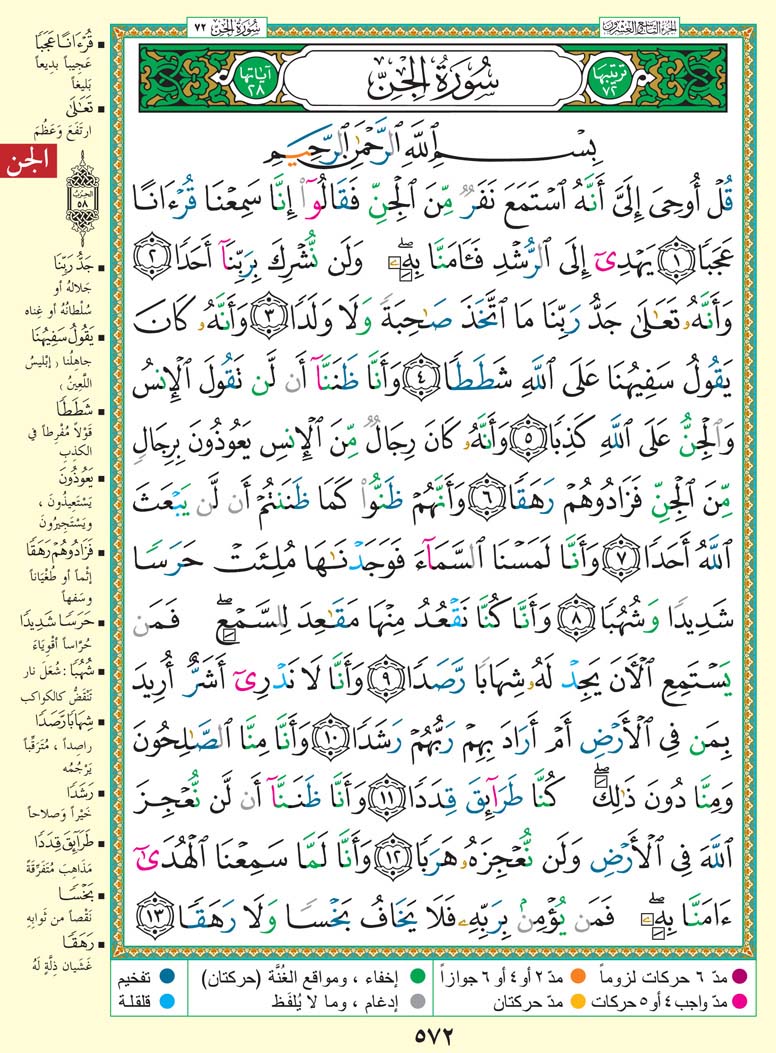 الجزء التاسع والعشرون
سورة الجن ٧٢
ترتيبها ٧٢
سُورَةُ الجِنّ
آياتها ٢٨
بِسْمِ ٱللَّهِ ٱلرَّحْمَٰنِ ٱلرَّحِيمِ
قُلْ أُوحِىَ إِلَىَّ أَنَّهُ ٱسْتَمَعَ نَفَرٌ مِّنَ ٱلْجِنِّ فَقَالُوٓا۟ إِنَّا سَمِعْنَا قُرْءَانًا
عَجَبًا ١ يَهْدِىٓ إِلَى ٱلرُّشْدِ فَـَٔامَنَّا بِهِۦ ۖ وَلَن نُّشْرِكَ بِرَبِّنَآ أَحَدًا ٢
وَأَنَّهُۥ تَعَٰلَىٰ جَدُّ رَبِّنَا مَا ٱتَّخَذَ صَٰحِبَةً وَلَا وَلَدًا ٣ وَأَنَّهُۥ كَانَ
يَقُولُ سَفِيهُنَا عَلَى ٱللَّهِ شَطَطًا ٤ وَأَنَّا ظَنَنَّآ أَن لَّن تَقُولَ ٱلْإِنسُ
وَٱلْجِنُّ عَلَى ٱللَّهِ كَذِبًا ٥ وَأَنَّهُۥ كَانَ رِجَالٌ مِّنَ ٱلْإِنسِ يَعُوذُونَ بِرِجَالٍ
مِّنَ ٱلْجِنِّ فَزَادُوهُمْ رَهَقًا ٦ وَأَنَّهُمْ ظَنُّوا۟ كَمَا ظَنَنتُمْ أَن لَّن يَبْعَثَ
ٱللَّهُ أَحَدًا ٧ وَأَنَّا لَمَسْنَا ٱلسَّمَآءَ فَوَجَدْنَٰهَا مُلِئَتْ حَرَسًا
شَدِيدًا وَشُهُبًا ٨ وَأَنَّا كُنَّا نَقْعُدُ مِنْهَا مَقَٰعِدَ لِلسَّمْعِ ۖ فَمَن
يَسْتَمِعِ ٱلْءَانَ يَجِدْ لَهُۥ شِهَابًا رَّصَدًا ٩ وَأَنَّا لَا نَدْرِىٓ أَشَرٌّ أُرِيدَ
بِمَن فِى ٱلْأَرْضِ أَمْ أَرَادَ بِهِمْ رَبُّهُمْ رَشَدًا ١٠ وَأَنَّا مِنَّا ٱلصَّٰلِحُونَ
وَمِنَّا دُونَ ذَٰلِكَ ۖ كُنَّا طَرَآئِقَ قِدَدًا ١١ وَأَنَّا ظَنَنَّآ أَن لَّن نُّعْجِزَ
ٱللَّهَ فِى ٱلْأَرْضِ وَلَن نُّعْجِزَهُۥ هَرَبًا ١٢ وَأَنَّا لَمَّا سَمِعْنَا ٱلْهُدَىٰٓ
ءَامَنَّا بِهِۦ ۖ فَمَن يُؤْمِنۢ بِرَبِّهِۦ فَلَا يَخَافُ بَخْسًا وَلَا رَهَقًا ١٣
قُرْءَانًا عَجَبًا
عَجِيباً بديعاً
بَليغاً
تَعَالَى
ارتَفَعَ وَعَظُمَ
الجن
الحزب
٥٨
جَدُّ رَبِّنَا
جَلالُهُ أو
سُلْطانُهُ أو غِناه
يَقُولُ سَفِيهُنَا
جاهلُنا ( إبْليسُ
اللَّعِينُ )
شَطَطًا
قَوْلاً مُفْرِطاً في
الكَذِب
يَعُوذُونَ
يَسْتَعِيذُونَ ،
ويَسْتَجِيرُونَ
فَزَادُوهُمْ رَهَقًا
إثْماً أو طُغْيَاناً
وسَفَهاً
حَرَسًا شَدِيدًا
حُرَّاساً أقْوِيَاءَ
شُهُبًا : شُعَلَ نار
تَنْقَضُّ كالكَواكب
شِهَابًا رَّصَدًا
راصِداً ، مُتَرَقِّباً
يَرْجُمُه
رَشَدًا
خَيْراً وَصلاحاً
طَرَآئِقَ قِدَدًا
مَذاهبَ مُتَفَرِّقَةً
بَخْسًا
نَقْصاً من ثَوابِهِ
رَهَقًا
غَشَيان ذِلَّةٍ لَهُ
مدّ ٦ حركات لزوماً مدّ ٢ أو ٤ أو ٦ جوازاً إخفاء ، ومواقع الغُنَّة (حركتان) تفخيم
مدّ واجب ٤ أو ٥ حركات مدّ حركتان إدغام ، وما لا يُلفَظ قلقلة
٥٧٢